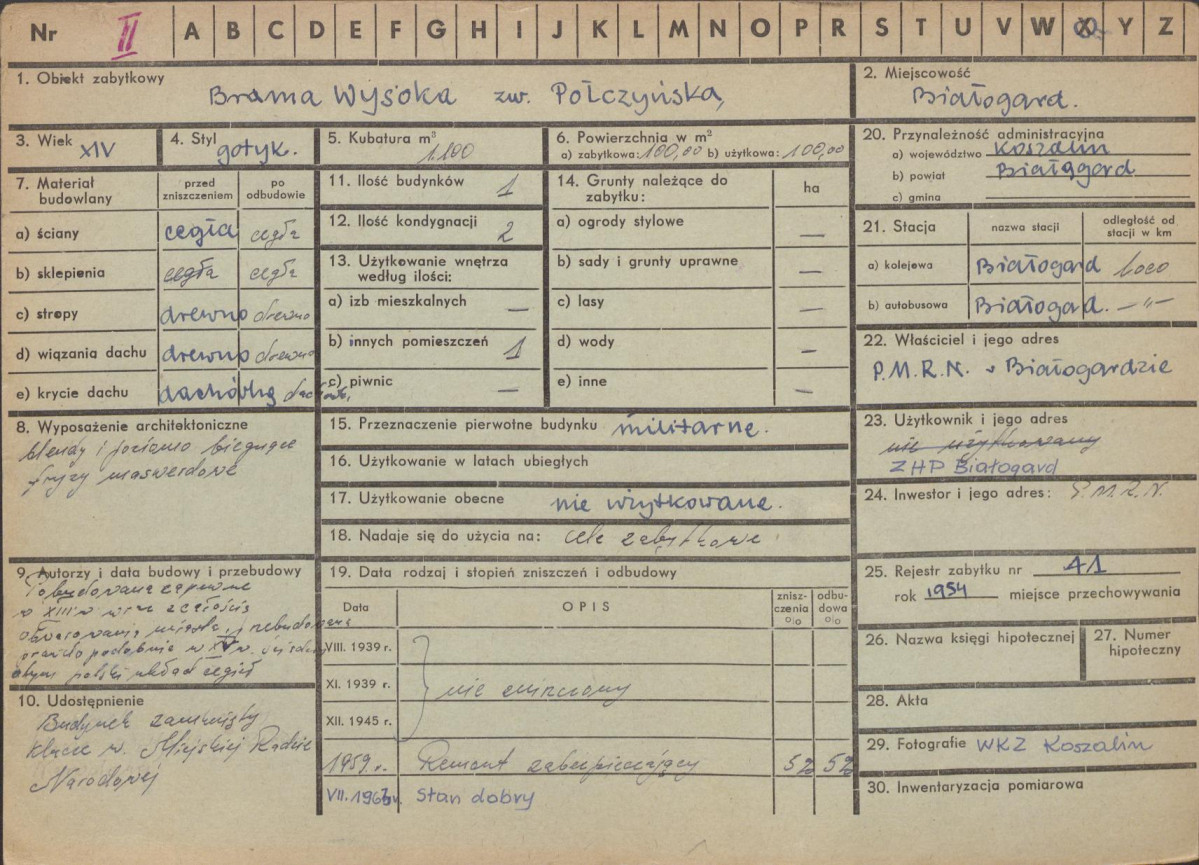 Nr II A B C D E F G H I J K L M N O P R S T U V W X Y Z
1. Obiekt zabytkowy
Brama Wysoka zw. Połczyńska,
2. Miejscowość
Białogard.
3. Wiek XIV
4. Styl gotyk.
5. Kubatura m³
1.100
6. Powierzchnia w m²
a) zabytkowa: 100,00 b) użytkowa: 100,00
20. Przynależność administracyjna
a) województwo Koszalin
b) powiat Białogard
c) gmina
7. Materiał budowlany
przed zniszczeniem
po odbudowie
a) ściany cegła cegła
b) sklepienia cegła cegła
c) stropy drewno drewno
d) wiązania dachu drewno drewno
e) krycie dachu dachówką
11. Ilość budynków 1
12. Ilość kondygnacji 2
13. Użytkowanie wnętrza
według ilości:
a) izb mieszkalnych —
b) innych pomieszczeń 1
c) piwnic —
14. Grunty należące do
zabytku:
ha
a) ogrody stylowe —
b) sady i grunty uprawne —
c) lasy —
d) wody —
e) inne —
21. Stacja
nazwa stacji
odległość od
stacji w km
a) kolejowa Białogard loco
b) autobusowa Białogard. —"—
22. Właściciel i jego adres
P.M.R.N. w Białogardzie
8. Wyposażenie architektoniczne
blendy i poziomo biegnące
fryzy maswerkowe
15. Przeznaczenie pierwotne budynku militarne.
16. Użytkowanie w latach ubiegłych
17. Użytkowanie obecne nie użytkowane.
18. Nadaje się do użycia na: cele zabytkowe
23. Użytkownik i jego adres
nie użytkowany
ZHP Białogard
24. Inwestor i jego adres: P.M.R.N.
9. Autorzy i data budowy i przebudowy
Pobudowana zapewne
w XIII w wraz z całością
obwarowania miasta, przebudowana
prawdopodobnie w XV w.
polski układ cegieł
19. Data rodzaj i stopień zniszczeń i odbudowy
Data
OPIS
zniszczenia
o/o
odbudowa
o/o
VIII. 1939 r.
XI. 1939 r. nie zniszczony
XII. 1945 r.
1959 r. Remont zabezpieczający 52 52
VII. 1963 r. Stan dobry
25. Rejestr zabytku nr 41
rok 1954 miejsce przechowywania
26. Nazwa księgi hipotecznej
27. Numer
hipoteczny
10. Udostępnienie
Budynek zamknięty
klucze w. Miejskiej Radzie
Narodowej
28. Akta
29. Fotografie WKZ Koszalin
30. Inwentaryzacja pomiarowa